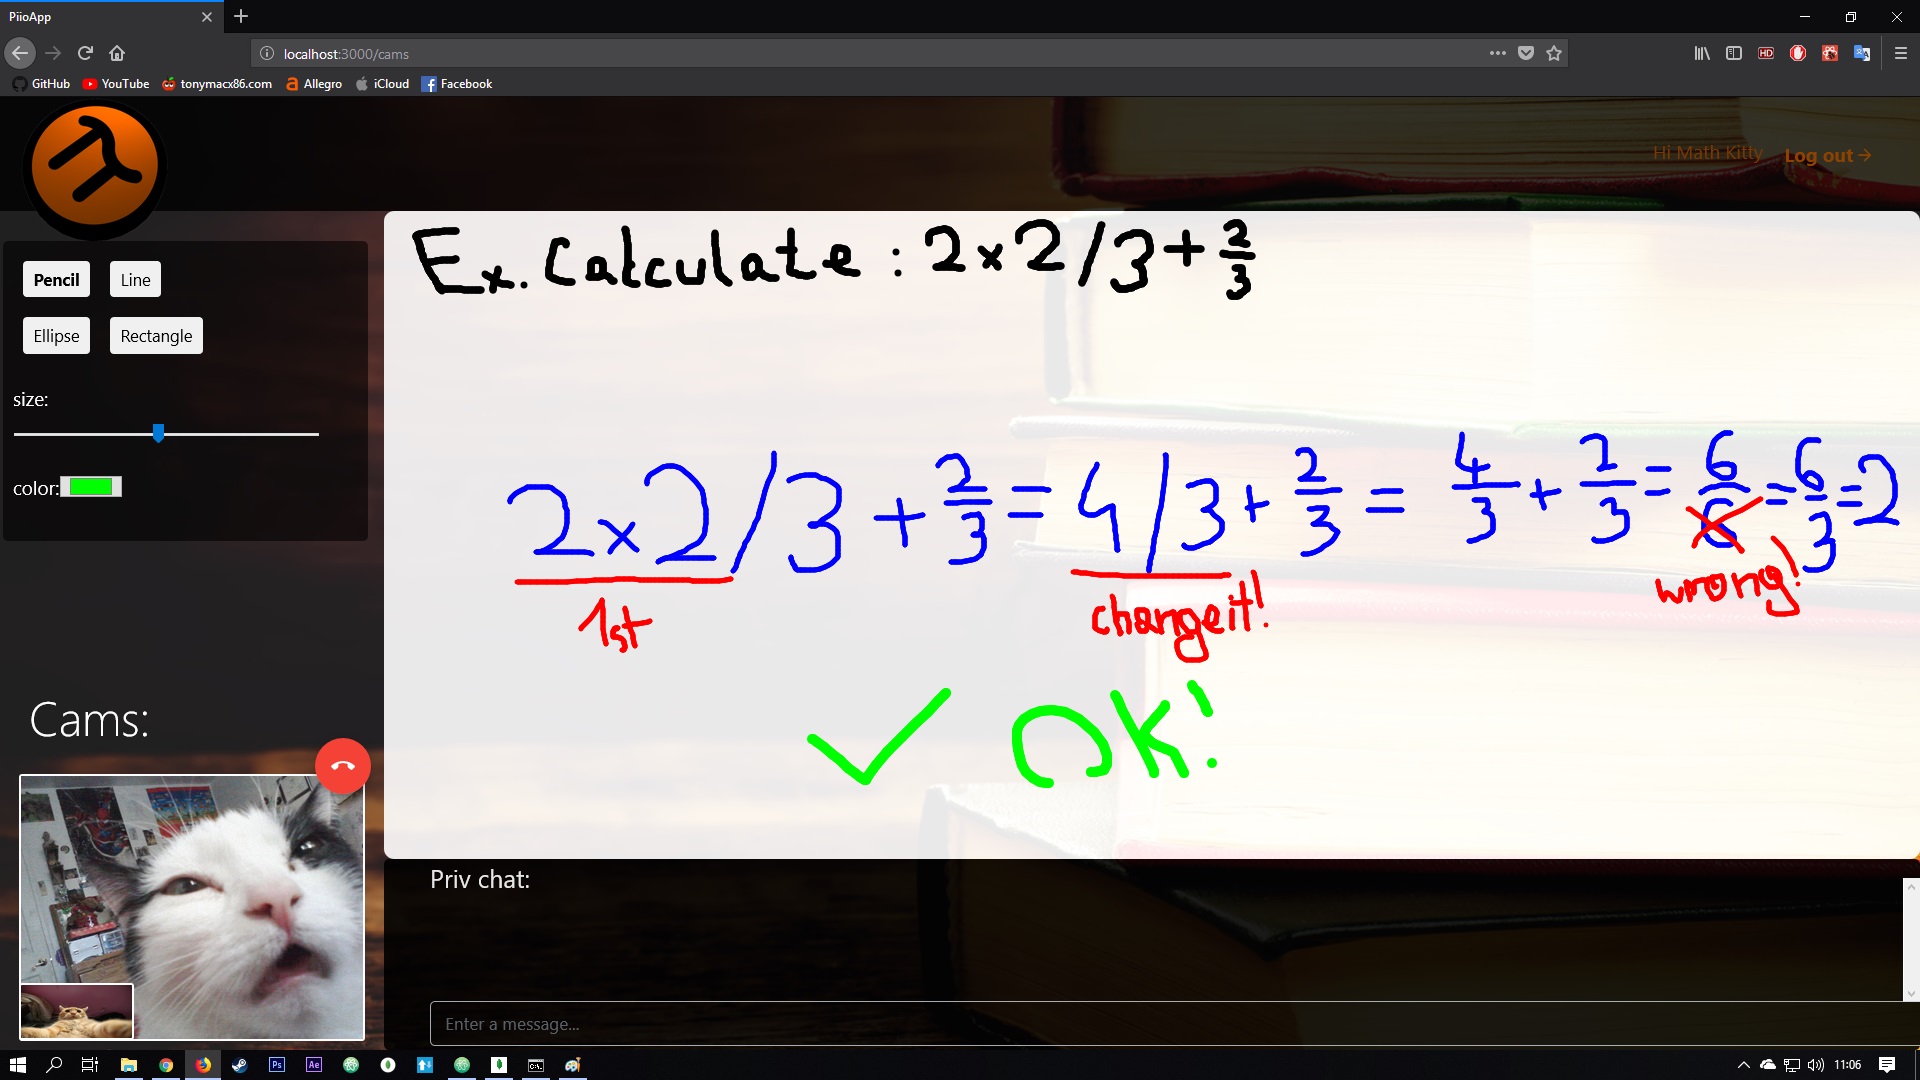 PiioApp
localhost:3000/cams
GitHub YouTube tonymacx86.com Allegro iCloud Facebook
Hi Math Kitty Log out →
Pencil Line
Ellipse Rectangle
size:
color:
Ex. Calculate : 2 x 2 / 3 + 2/3
2 x 2 / 3 + 2/3 = 4 / 3 + 2/3 = 4/3 + 2/3 = 6/6 = 6/3 = 2
1st change it! wrong!
OK!
Cams:
Priv chat:
Enter a message...
HD
Ps Ae
11:06